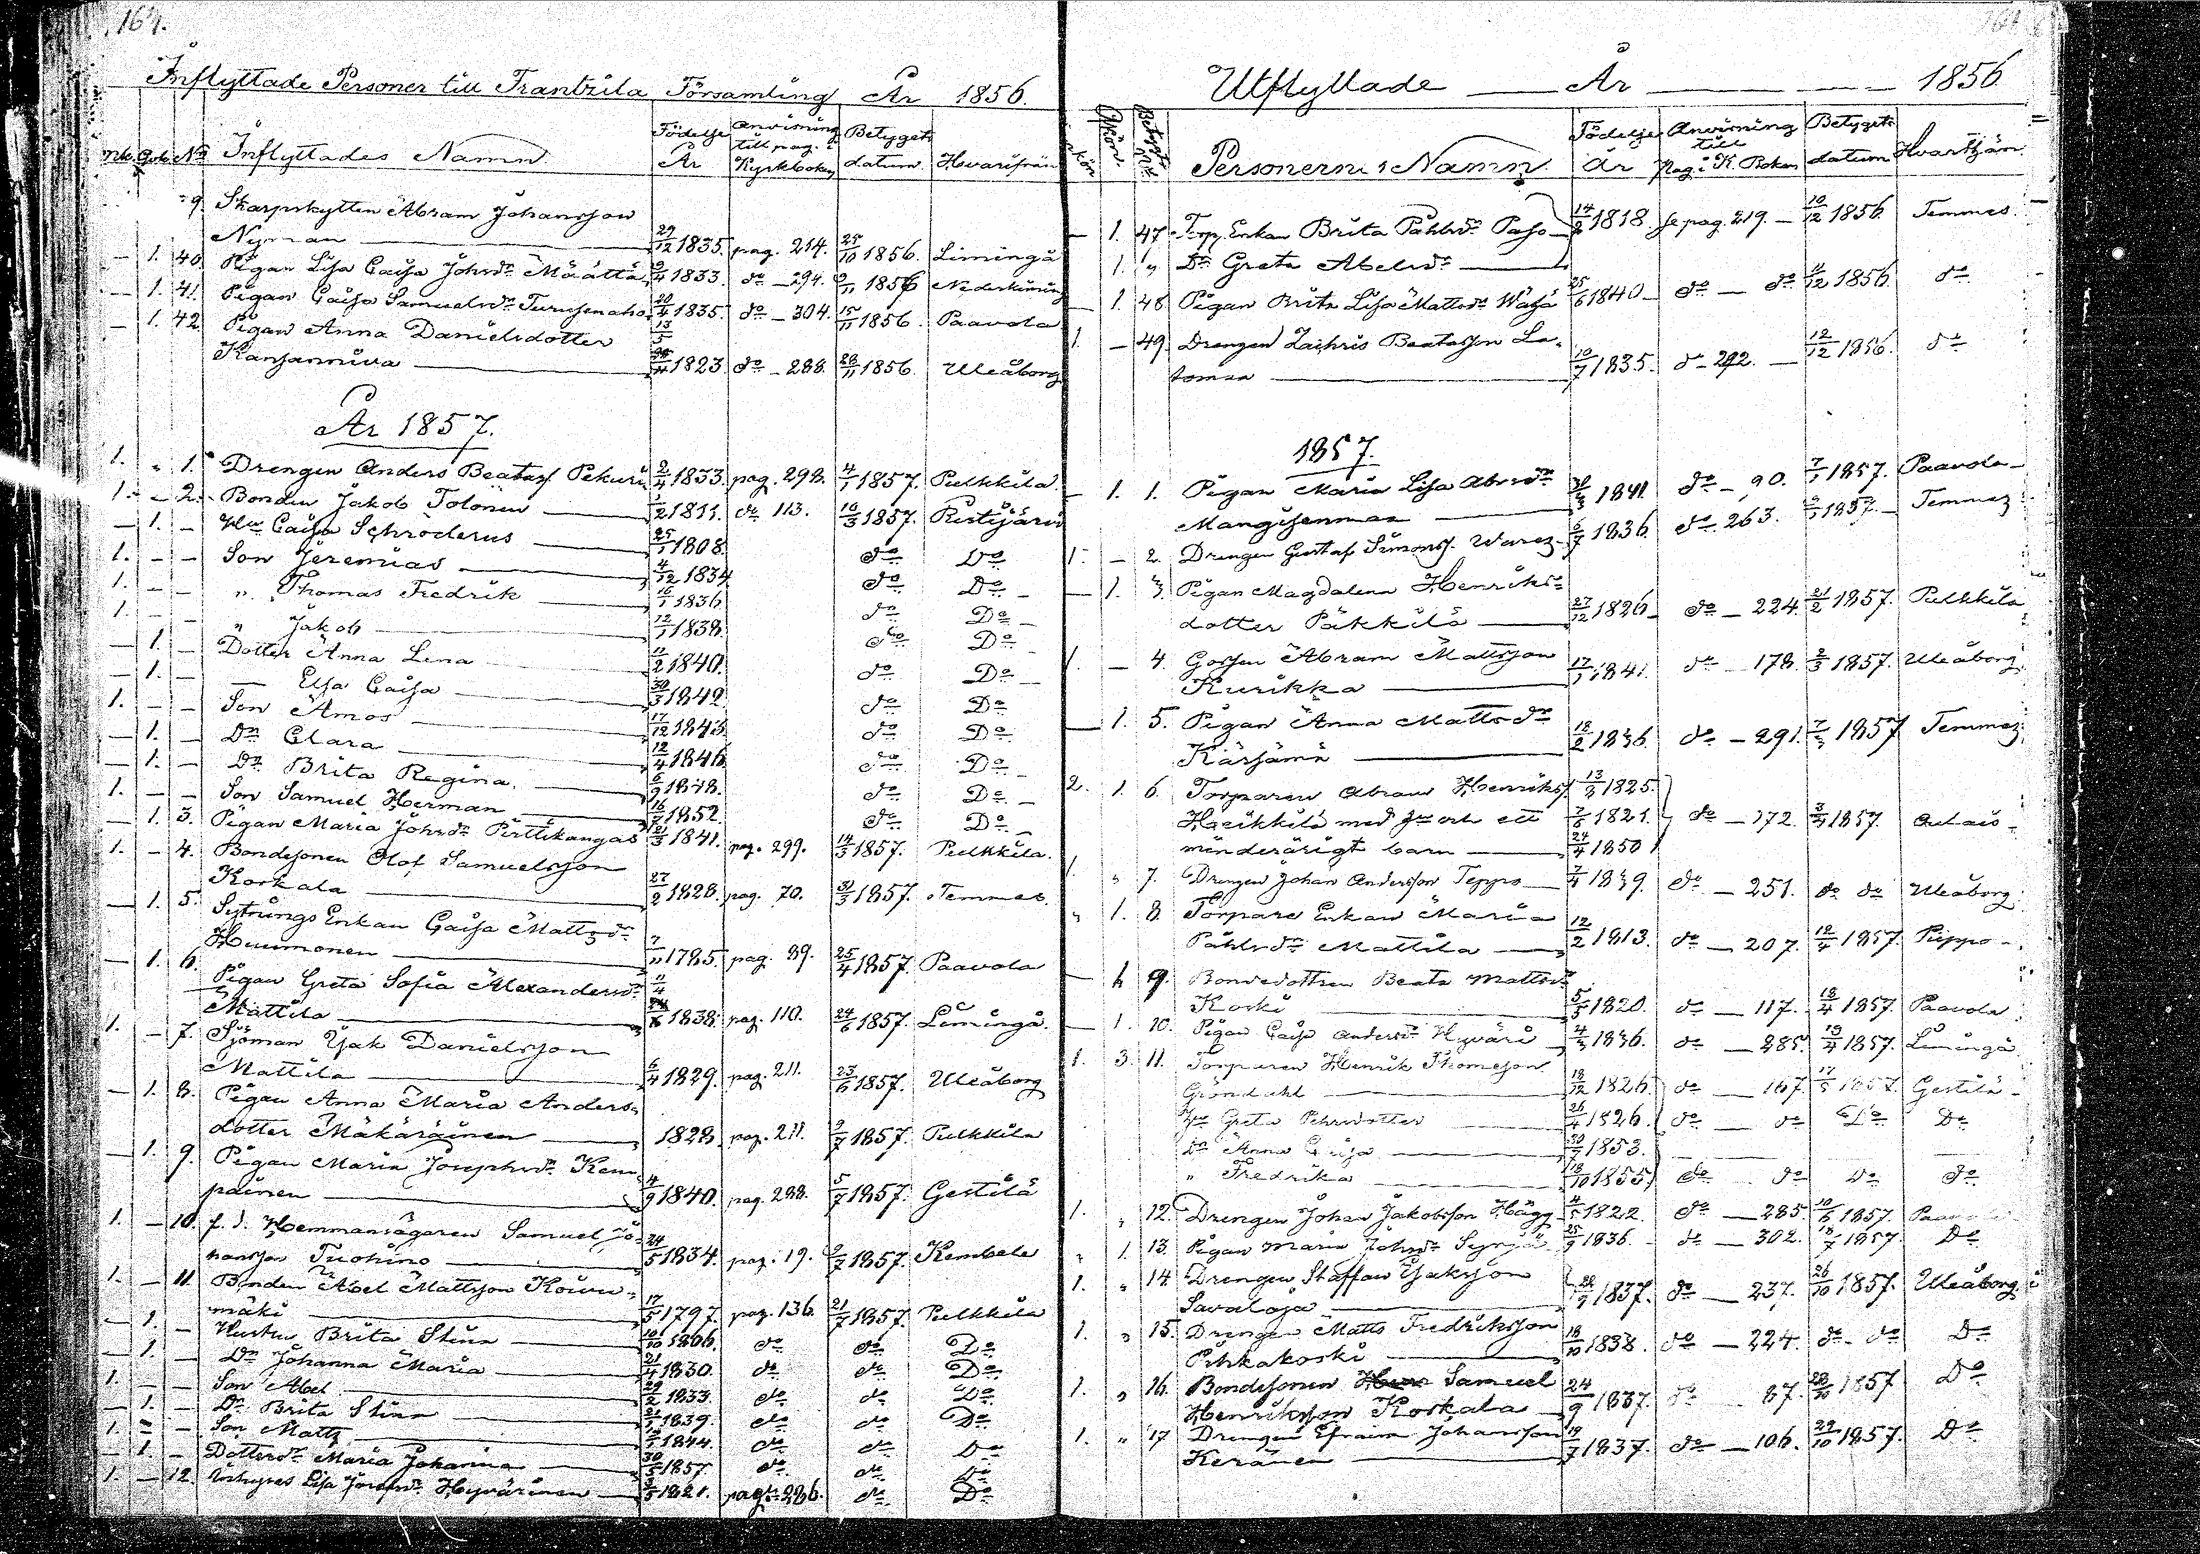 164.
Inflyttade Personer till Frantzila Församling År 1856.
Mk. Qvk. No Inflyttades Namn Födelse År Anvisning till pag. i Kyrkboken Betygets datum. Hvarifrån
Skarpskytten Abram Johansson
Nyman 29/12 1835. pag. 214. 25/10 1856. Limingå
1. 40. Pigan Lisa Caisa Johsdr Määttä 9/4 1833. do 294. 9/11 1856
1. 41. Pigan Caisa Samuelsdr 20/4 1835. do 304. 15/11 1856. Paavola
1. 42. Pigan Anna Danielsdotter
Kansanniva 1823. do 288. 28/11 1856. Uleåborg
År 1857.
1. " 1. Drengen Anders Beatas Pekuri 2/4 1833. pag. 298. 4/1 1857. Pulkkila.
1. - 2. Bonden Jakob Tolonen 1/2 1811. do 113. 10/3 1857. Pyhäjärvi
- 1. - Hu Caisa Schroderus 25/1 1808. do Do
1. - - Son Jeremias 4/12 1834 do Do
1. - - " Thomas Fredrik 16/1 1836 do Do
1. - - " Jakob 12/1 1838 do Do
- 1. - Dotter Anna Lena 11/2 1840. do Do
- 1. - Elsa Caisa 30/3 1842 do Do
1. - - Son Amos 17/12 1843 do Do
- 1. - Dr Clara 12/4 1846 do Do
- 1. - Dr Brita Regina. 6/9 1848. do Do
1. - - Son Samuel Herman 16/7 1852. do Do
- 1. 3. Pigan Maria Johsdr Pirttikangas 21/3 1841. pag. 299. 14/3 1857. Pulkkila.
1. - 4. Bondesonen Olof Samuelsson
Koskala 27/2 1828. pag. 70. 31/3 1857. Temmes.
- 1. 5. Sytnings Enkan Caisa Mattsdr
Huumonen 7/11 1785. pag. 89. 25/4 1857. Paavola
- 1. 6. Pigan Greta Sofia Alexandersdr
Mattila 1838. pag. 110. 24/6 1857. Limingå.
1. - 7. Sjöman Isak Danielsson
Mattila 6/4 1829. pag. 211. 23/6 1857. Uleåborg
- 1. 8. Pigan Anna Maria Anders-
dotter Mäkäräinen 1828. pag. 211. 2/7 1857. Pulkkila
- 1. 9. Pigan Maria Josephsdr Kem-
painen 4/9 1840. pag. 288. 5/7 1857. Gestilä
1. - 10. f. d. Hemmansägaren Samuel Jo-
hansson Tuohino 24/5 1834. pag. 19. 9/7 1857. Kembele
1. - 11. Bonden Abel Mattsson Koivu-
mäki 17/5 1797. pag. 136. 21/7 1857. Pulkkila
- 1. - Hustru Brita Stina 10/10 1806. do do Do
- 1. - Dr Johanna Maria 21/4 1830. do do Do
1. - - Son Abel 1833. do do Do
- 1. - Dr Brita Stina 1839. do do Do
1. - - Son Matts 1844. do do Do
- 1. - Dottersdr Maria Johanna 1857. do do Do
1. - 12. Lisa Josefsdr Hyvärinen 1821. pag. 286. do Do
Utflyttade År 1856
Personernas Namn. Födelse År Anvisning till pag. i K. Boken Betygets datum Hvarthän
- 1. 47. Torp. Enkan Brita Påhlsdr Paso 14/2 1818. se pag. 219. 10/12 1856. Temmes.
1. " Dr Greta Abelsdr
- 1. 48. Pigan Brita Lisa Mattsdr 25/6 1840 do do 11/12 1856. do
1. - 49. Drengen Zachris Beatasson La-
tomaa 10/7 1835. do 292. 12/12 1856. do
1857.
- 1. 1. Pigan Maria Lisa Abrsdr
Mangisenmaa 1841. do 90. 7/1 1857. Paavola
1. - 2. Drengen Gustaf Simonss. Warez 6/7 1836. do 263. 1857. Temmez
- 1. 3. Pigan Magdalena Henriks-
dotter Päkkilä 27/12 1826 do 224. 21/2 1857. Pulkkila
1. - 4. Gossen Abram Mattsson
Kurikka 17/1 1841. do 178. 2/3 1857. Uleåborg.
- 1. 5. Pigan Anna Mattsdr
Kärsämä 18/2 1836. do 291. 7/3 1857 Temmez
2. 1. 6. Torparen Abram Henrikss. 13/3 1825.
Heikkilä med hu och ett 7/6 1821. do 172. 3/4 1857.
minderårigt barn 24/4 1850
1. " 7. Drengen Johan Andersson Teppo 7/4 1839. do 251. do do Uleåborg
" 1. 8. Torpare Enkan Maria
Påhlsdr Mattila 12/2 1813. do 207. 12/4 1857. Piippo
- 1. 9. Bondedottren Beata Mattsdr
Koski 5/5 1820. do 117. 18/4 1857. Paavola
- 1. 10. Pigan Caisa Andersdr Hyväri 4/3 1836. do 285. 19/4 1857. Limingå.
1. 3. 11. Torparen Henrik Thomasson
Gröndahl 18/12 1826 do 167. 17/5 1857. Gestilä
Hu Greta Pehrsdotter 26/4 1826. do do Do Do
Dr Anna Caisa 30/7 1853.
" Fredrika 18/10 1855. do do Do do
1. " 12. Drengen Johan Jakobsson Hägg 4/5 1822. do 285. 10/6 1857. Paavola
" 1. 13. Pigan Maria Johsdr 25/9 1836. do 302. 18/7 1857. Do
1. " 14. Drengen Staffan Isaksson
Savaloja 1837. do 237. 26/10 1857. Uleåborg.
1. " 15. Drengen Matts Fredriksson
Pihkakoski 18/10 1838. do 224. do do Do
1. " 16. Bondesonen Samuel
Henriksson Koskala 24/9 1837. do 87. 28/10 1857 Do
1. " 17. Drengen Efraim Johansson
Keränen 19/7 1837. do 106. 29/10 1857. Do